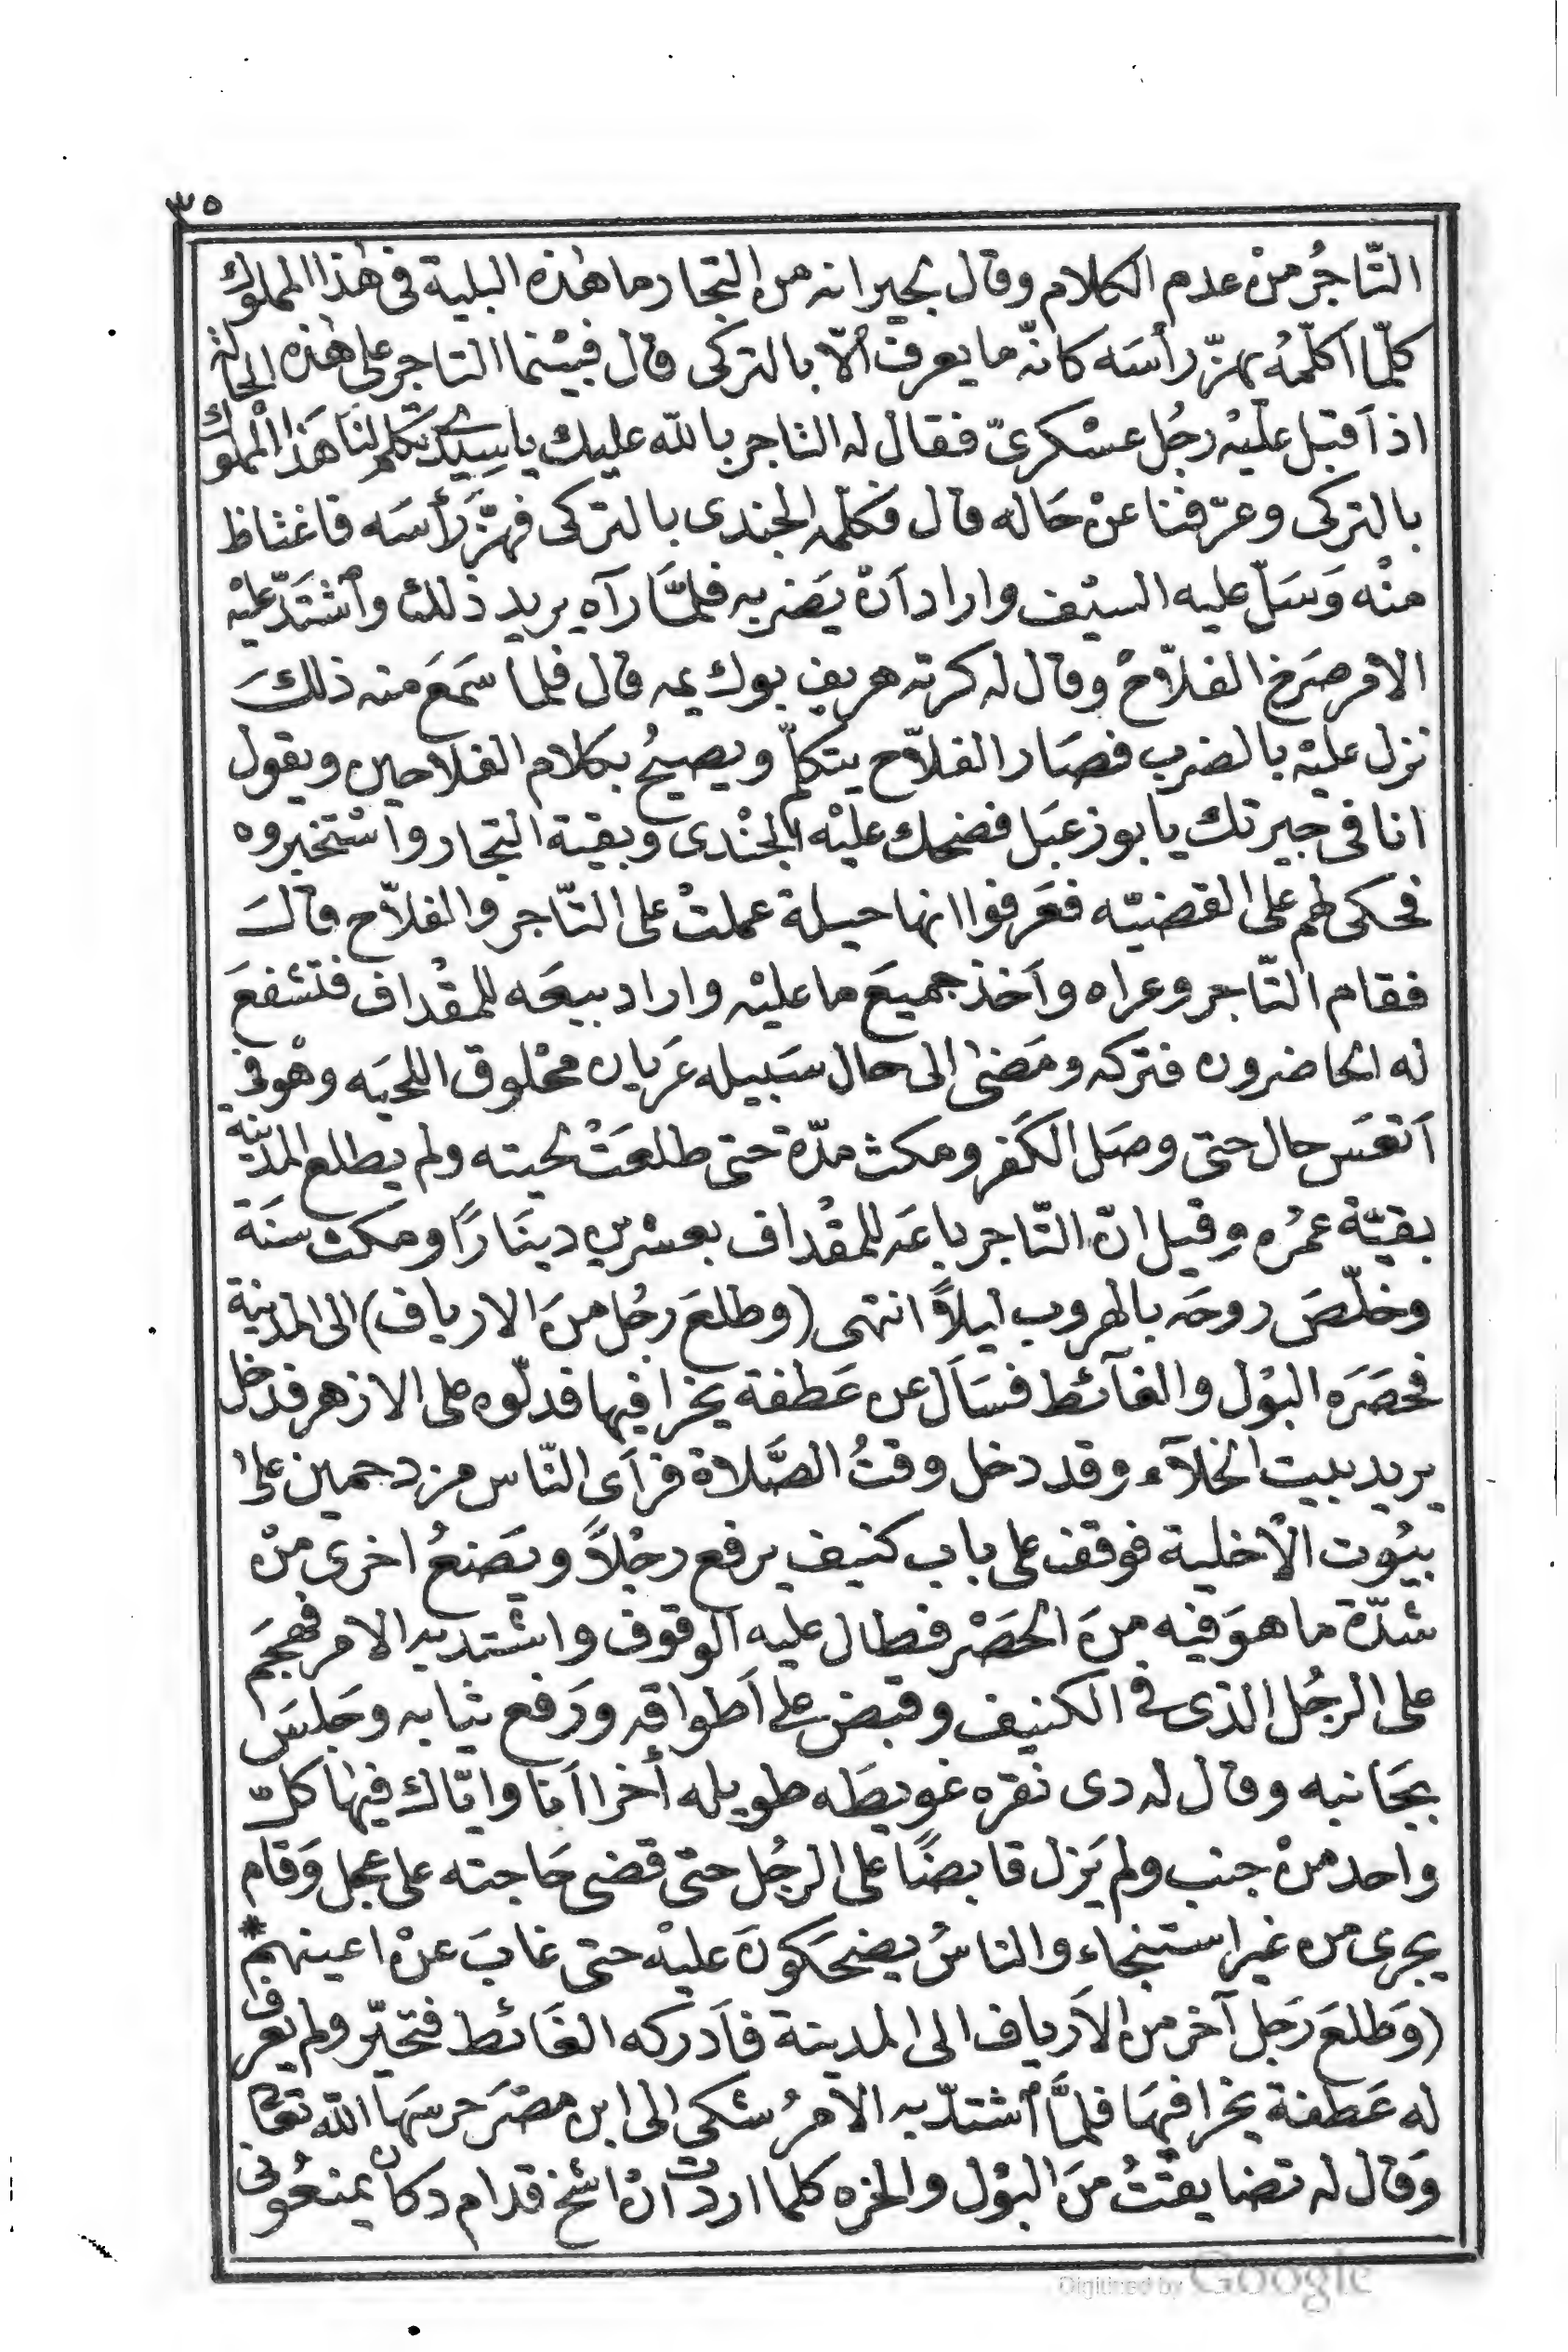 ٣٥
التّاجُر منْ عدم الكلام وقال لجيرانه من التجار ما هٰذه البلية فى هٰذا المملوك
كلّما اكلّمهُ يهزّ رأسَه كانّه ما يعرف الّا بالتركى قال فبيْنما التاجر على هٰذه الحالة
اذ اَقبل علَيْه رجُل عسْكرىّ فقال له التاجر بالله عليك يا سيدى تكلم لنَا هَذا الْمملوك
بالتركى وعرّفْنا عنْ حَاله قال فكلّمه الجندى بالتركى فهزَّ رأسَه فاغتاظ
منْه وَسَلّ عليه السيْف واراد اَنْ يَضربه فلمَّا رآه يريد ذٰلك واشتَدّ عليْه
الامر صَرخ الفلاّحْ وقال له كرته هريف بوك يمه قال فلما سَمَعَ منه ذلكَ
نزل عليْه بالضرب فصَار الفلاّح يتكلّم ويصيحُ بكلام الفلاحين ويقول
انا فى جيرتك يا بوزعبَل فضحك عليْه الجنْدى وبقية التجار واسْتخبروه
فحكى لهم على القضيّه فعَرفوا انها حيلة عملتْ على التّاجر والفلاّح قالَ
فقام التّاجر وعراه واَخذ جميعَ ما عليْه واراد بيعَه للمقْداف فتشفعَ
له الحاضرون فتركه ومَضىٰ الى حال سَبيله عَريان محْلوق اللحيَه وهْو فى
اَتعَس حال حتى وصَل الكَفر ومكث مدّة حتى طلعَتْ لحيته ولم يطلع المدينة
بقيّة عمُره وقيل انّ التّاجر باعَه للمقْداف بعشْرين دينَارًا ومكث سنَة
وخلّصَ روحَه بالهروب ليلاً انتهى (وطلعَ رجُل منَ الارياف) الى المدينة
فحصَرَه البوْل والغآئط فسَاَل عن عَطفة يخرا فيها فدلّوه على الازهر فدخل
يريد بيت الخلآء وقد دخل وقتُ الصَّلاة فرآى النّاس مزدحمين على
بيُوت الاْخلية فوقف على باب كنيف يرفع رجْلاً ويَضعُ اخرى منْ
شدّة ما هوَ فيه منَ الحَصْر فطال عليه الوقوف واشْتد به الامر فهجَم
على الرجُل الذى فى الكنيف وقبض على اَطواقه ورَفع ثيابه وجَلسَ
بجَانبه وقال له دى نقره غويطَه طويله أخرا اَنا وايّاك فيها كلّ
واحد منْ جنب ولم يَزل قابضًا على الرجُل حتى قضى حَاجته على عجل وَقام
يجرى من غير استنجاء والناسُ يضحَكونَ عليْه حتى غابَ عنْ اعينهم *
(وَطلعَ رَجل آخر من الاَرياف الى المدينة فاَدركه الغَائط فتحيّر ولم يعرف
له عَطفة يخرا فيهَا فلمَّا اشتدّ به الامرُ شكى الى ابن مصْرَ حرسَهَا الله تعَالى
وَقال له تضايقْتُ منَ البْول والخره كلما اردْت انْ اشخ قدام دكان يمنعُونى